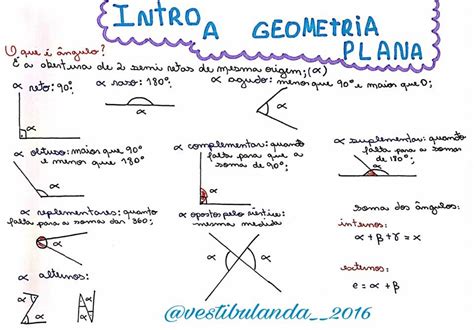 INTRO A GEOMETRIA PLANA
O que é ângulo?
É a abertura de 2 semi retas de mesma origem; (α)
α reto: 90°
α raso: 180°
α agudo: menor que 90° e maior que 0;
α obtuso: maior que 90°
e menor que 180°
α complementar: quanto
falta para que a
soma de 90°;
α suplementar: quanto
falta para a soma
de 180°;
α replementares: quanto
falta para a soma dar 360;
α opostos pelo vértice:
mesma medida
soma dos ângulos:
internos:
α + β + γ = x
externos:
e = α + β
α alternos:
α
α
α
α
α
α
α
α
α
α
α
α
@vestibulanda__2016